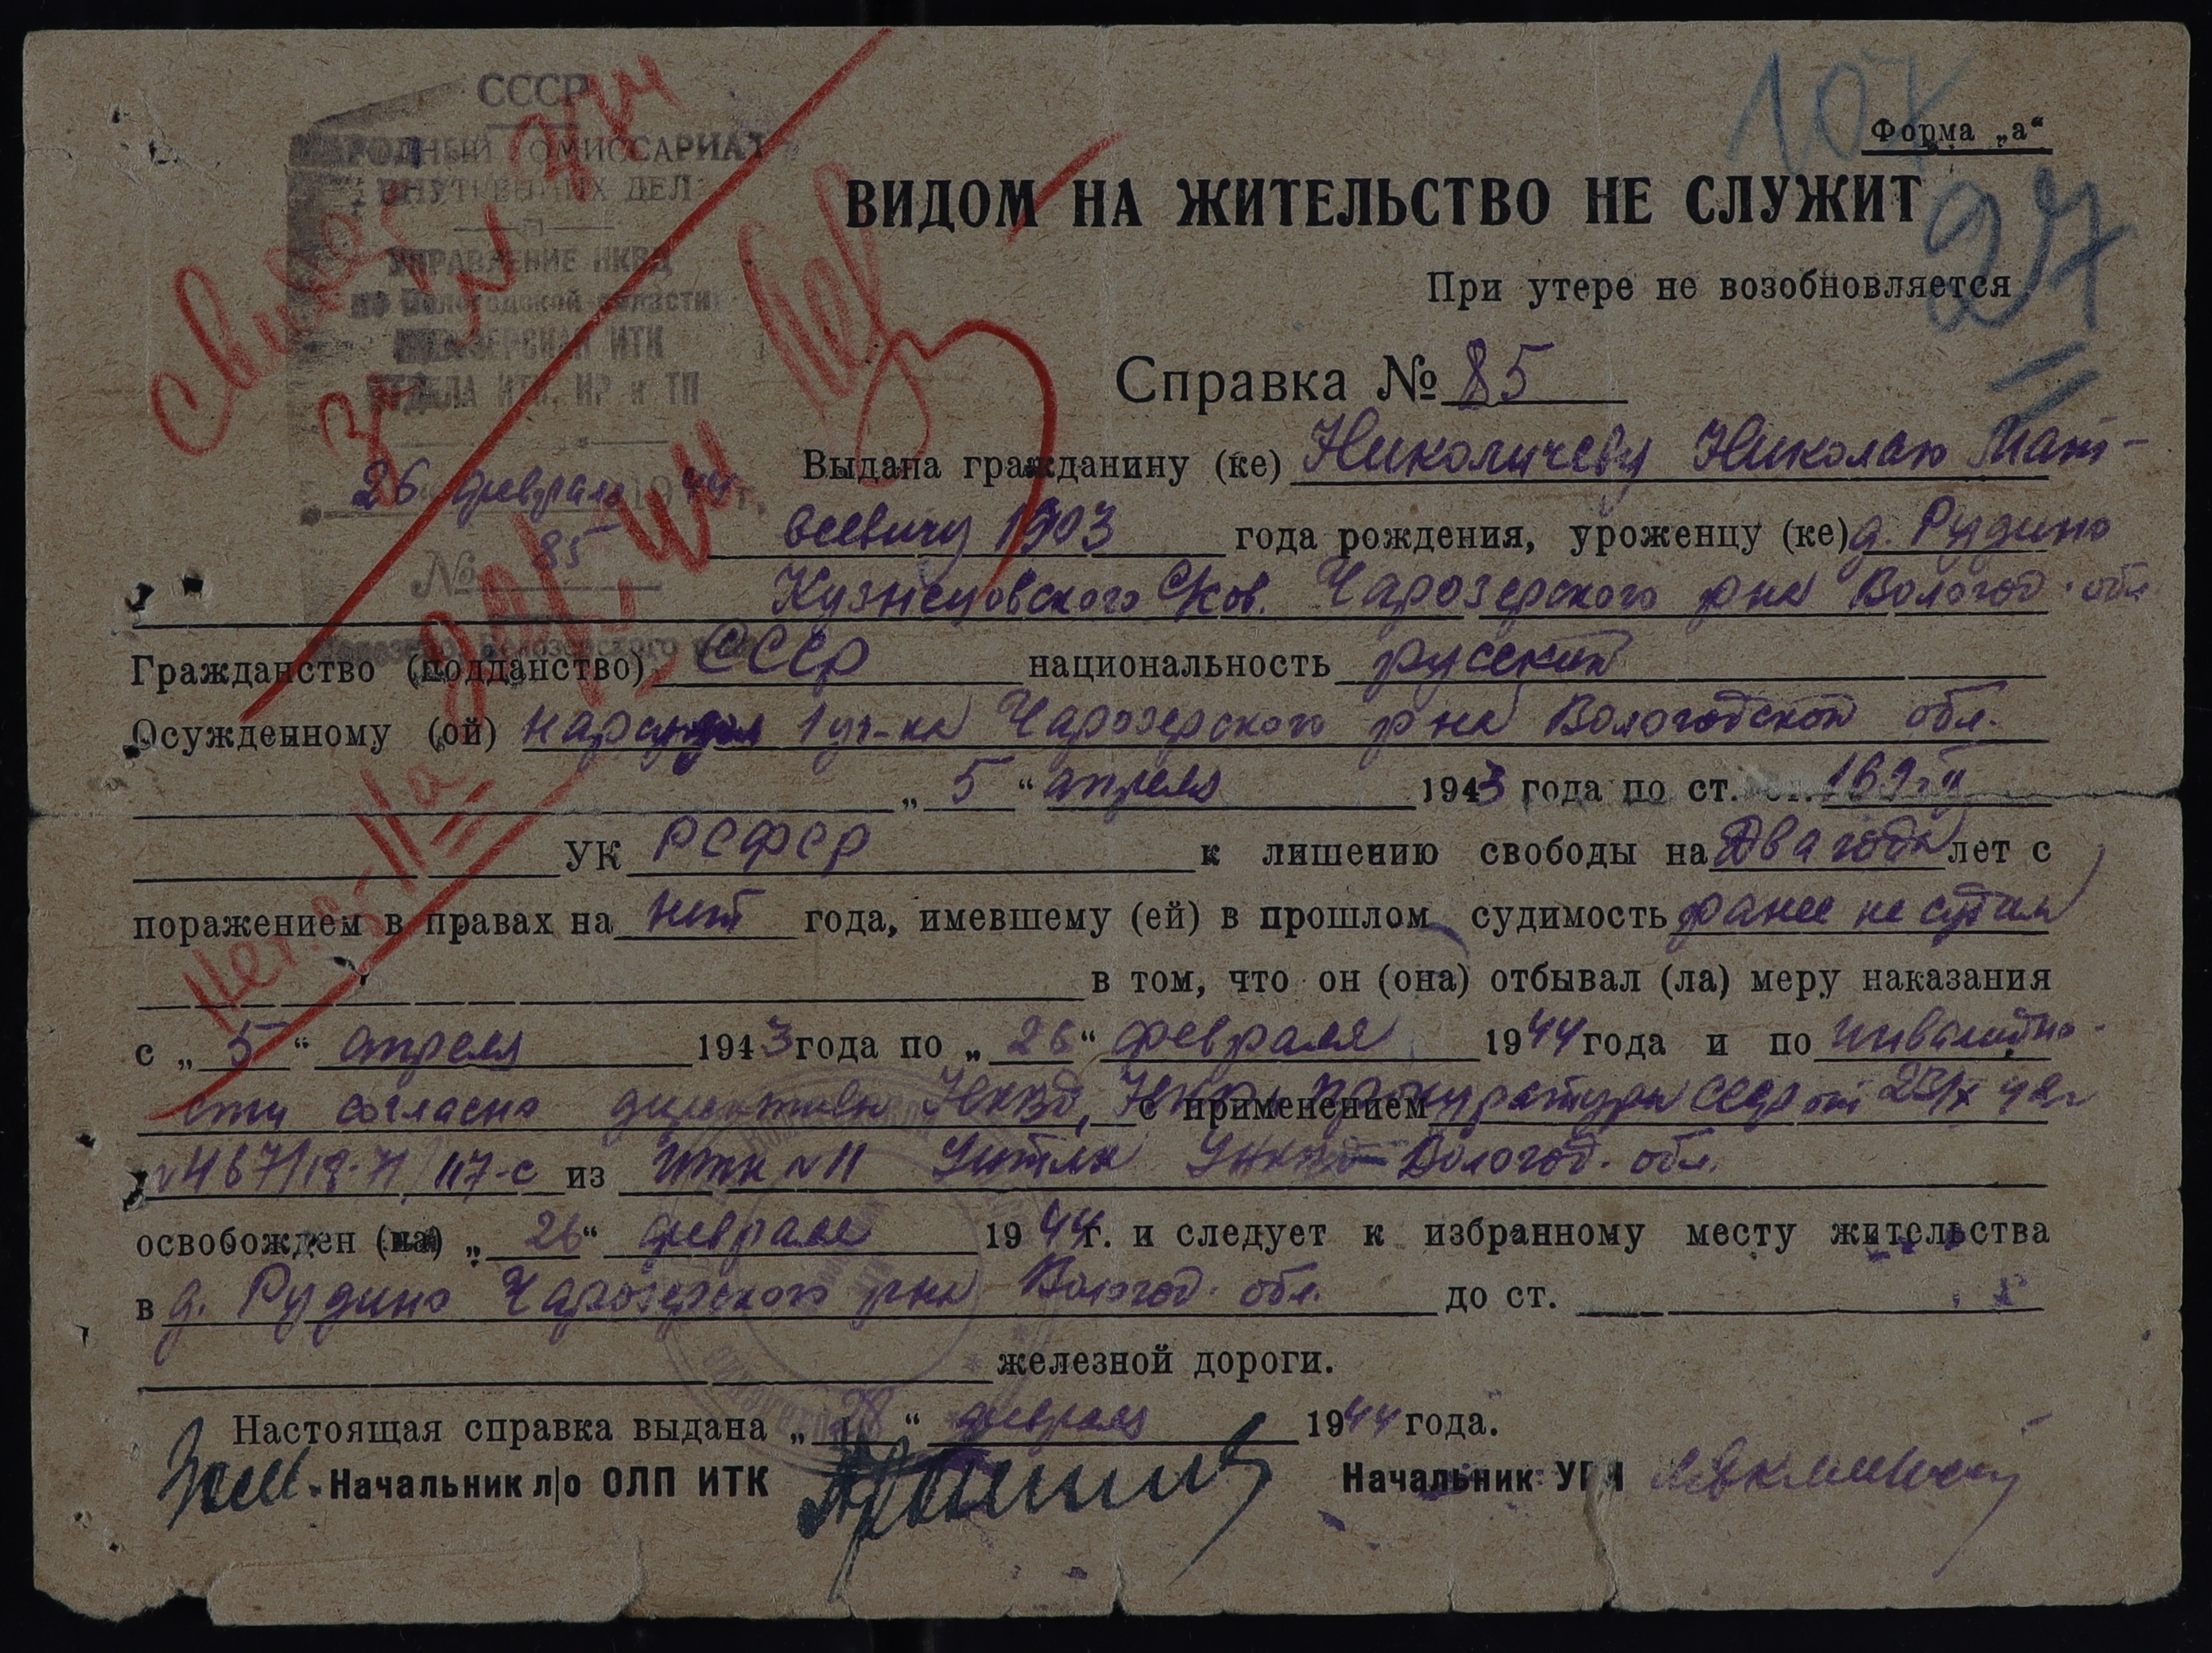 СССР
НАРОДНЫЙ КОМИССАРИАТ
ВНУТРЕННИХ ДЕЛ
УПРАВЛЕНИЕ НКВД
по Вологодской области
БЕЛОЗЕРСКАЯ ИТК
ОТДЕЛА ИТК
26 февраля 1944 г.
№ 85
107
27
Форма „а“
ВИДОМ НА ЖИТЕЛЬСТВО НЕ СЛУЖИТ
При утере не возобновляется
Справка № 85
Выдана гражданину (ке) Николичеву Николаю Мат-
веевичу 1903 года рождения, уроженцу (ке) д. Рудино
Кузнецовского с/сов. Чарозерского р-на Вологод. обл
Гражданство (подданство) СССР национальность русский
Осужденному (ой) нарсудом 1 уч-ка Чарозерского р-на Вологодской обл.
„ 5 “ апреля 1943 года по ст. 169 ч II
УК РСФСР к лишению свободы на Два года лет с
поражением в правах на нет года, имевшему (ей) в прошлом судимость ранее не судим
в том, что он (она) отбывал (ла) меру наказания
с „ 5 “ апреля 1943 года по „ 26 “ февраля 1944 года и по инвалидно-
сти согласно директивы НКВД, НКЮ и прокуратуры СССР от 23/X 42г с применением
№ 467/18-71/117-с из ИТК № 11 УИТЛК УНКВД Вологод. обл.
освобожден (на) „ 26 “ февраля 1944 г. и следует к избранному месту жительства
в д. Рудино Чарозерского р-на Вологод. обл. до ст.
железной дороги.
Настоящая справка выдана „ 28 “ февраля 1944 года.
Зам. Начальник л/о ОЛП ИТК Начальник УРЧ